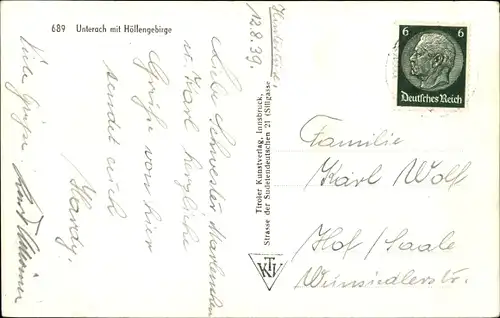 689 Unterach mit Höllengebirge
12.8.39.
Liebe Schwester
u. Karl herzliche
Grüße von hier
sendet euch
Hardy.
Viele Grüße
Tiroler Kunstverlag, Innsbruck,
Strasse der Sudetendeutschen 21 (Sillgasse
TKV
6 6
Deutsches Reich
Familie
Karl Wolf
Hof/Saale
Wunsiedlerstr.